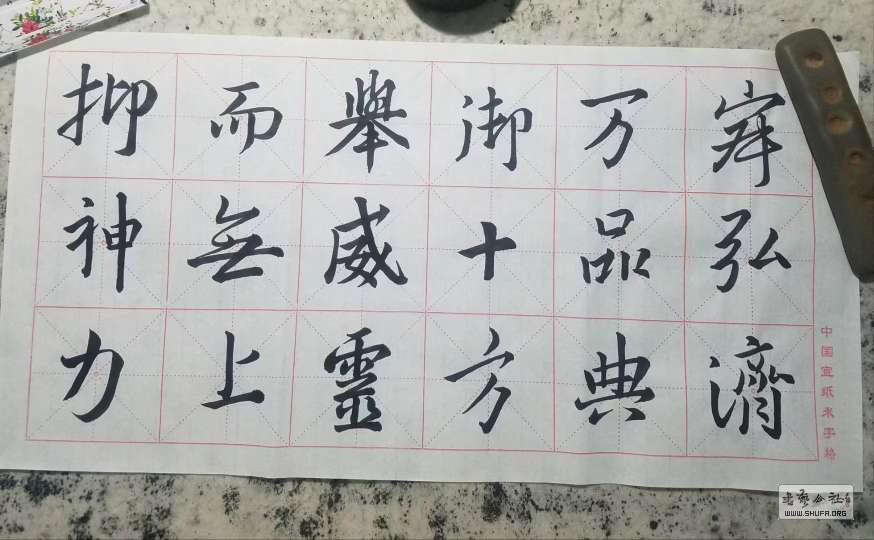 寂弘濟
万品典
御十方
舉威靈
而無上
抑神力
中国宣纸米字格
书艺公社
WWW.SHUFA.ORG